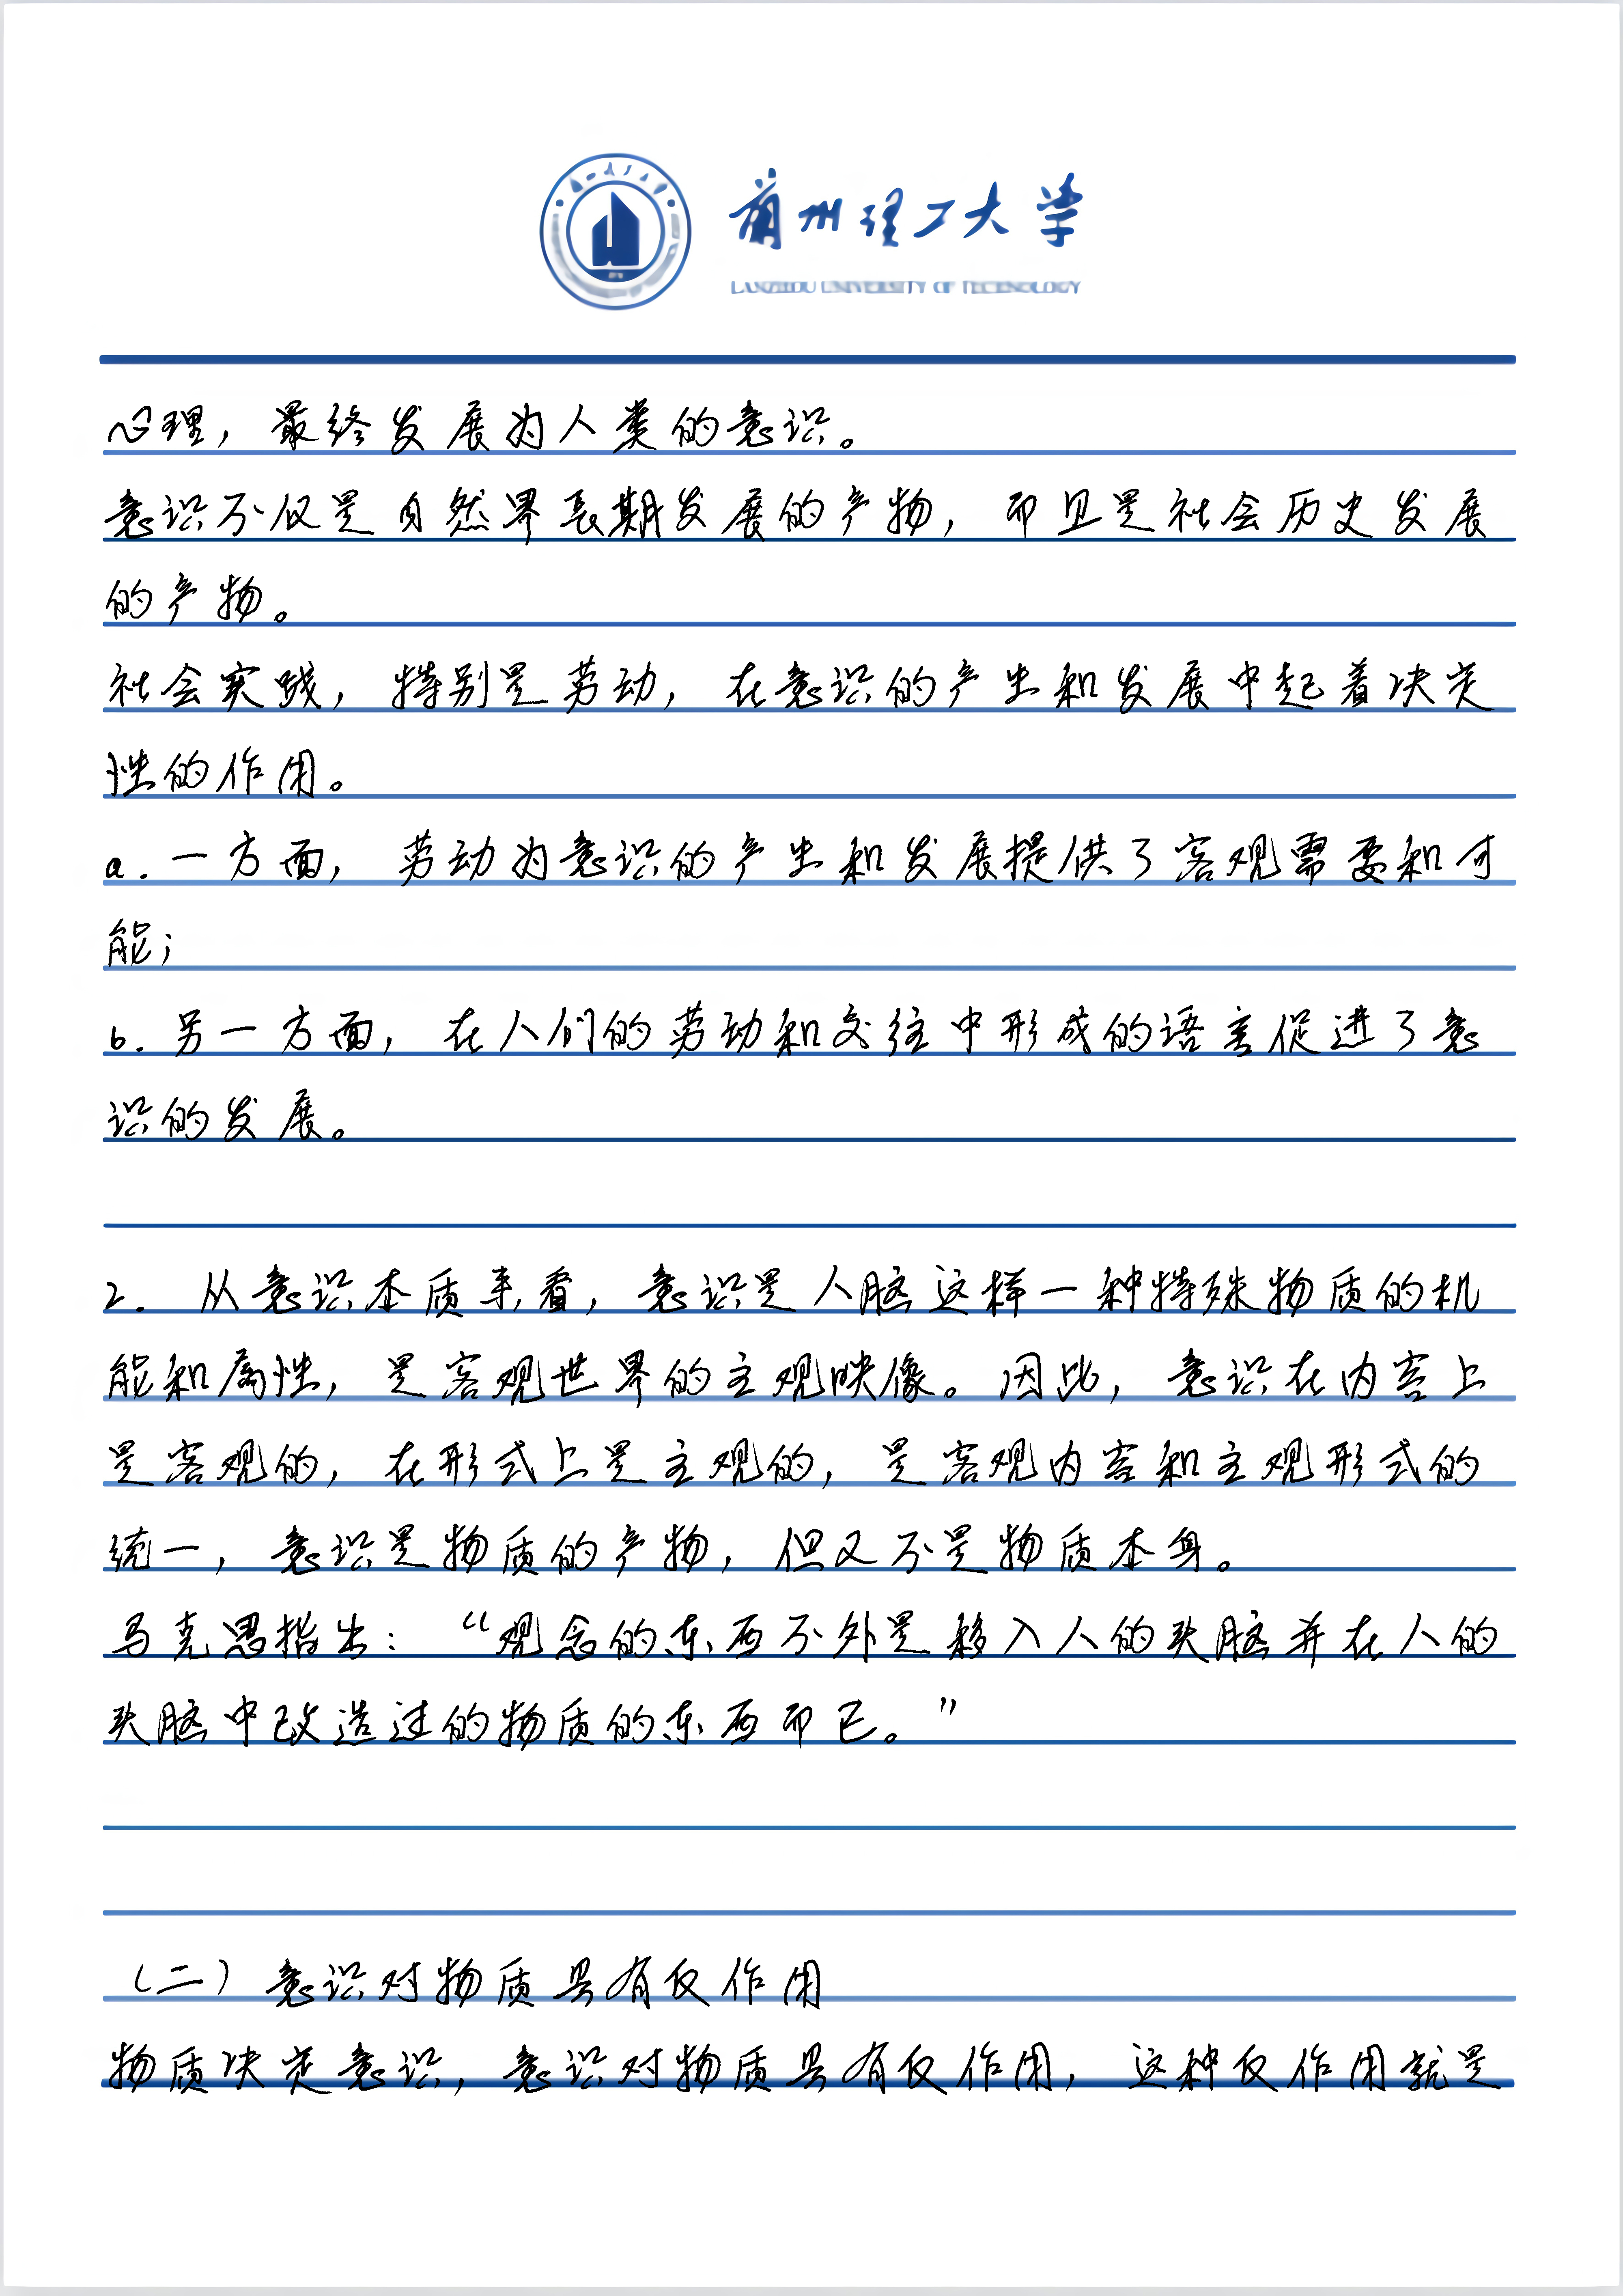 兰州理工大学
LANZHOU UNIVERSITY OF TECHNOLOGY
心理，最终发展为人类的意识。
意识不仅是自然界长期发展的产物，而且是社会历史发展
的产物。
社会实践，特别是劳动，在意识的产生和发展中起着决定
性的作用。
a. 一方面，劳动为意识的产生和发展提供了客观需要和可
能；
b. 另一方面，在人们的劳动和交往中形成的语言促进了意
识的发展。
2. 从意识本质来看，意识是人脑这样一种特殊物质的机
能和属性，是客观世界的主观映像。因此，意识在内容上
是客观的，在形式上是主观的，是客观内容和主观形式的
统一，意识是物质的产物，但又不是物质本身。
马克思指出：“观念的东西不外是移入人的头脑并在人的
头脑中改造过的物质的东西而已。”
（二）意识对物质具有反作用
物质决定意识，意识对物质具有反作用，这种反作用就是